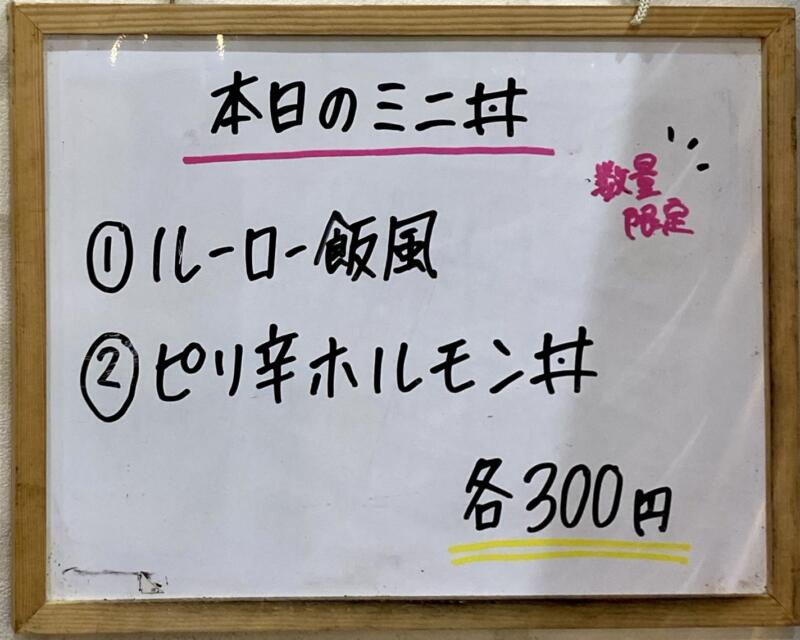 本日のミニ丼
数量
限定
①ルーロー飯風
②ピリ辛ホルモン丼
各300円